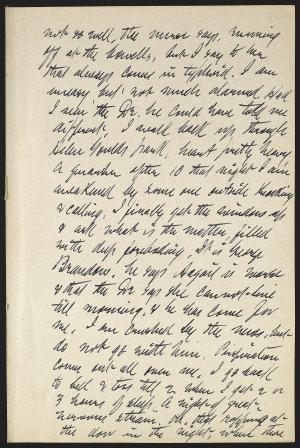 not so well, the nurse says, running
off at the bowells, but I say to her
that always comes in typhoid. I am
uneasy but not much alarmed. Had
I seen the Dr. he could have told me
different. I walk back up through
Helen Goulds park, heart pretty heavy
A quarter after 10 that night I am
awakened by some one outside knocking
& calling. I finally get the window up
& ask what is the matter, filled
with deep foreboding. It is George
Brandow. He says Abigail is worse
& that the Dr says she cannot live
till morning, & he has come for
me. I am crushed by the news, but
do not go with him. Perspiration
comes out all over me. I go back
to bed & toss till 2 when I get 2 or
3 hours of sleep. A night of great
nervous strain. Oh, that rapping at
the door in the night where there